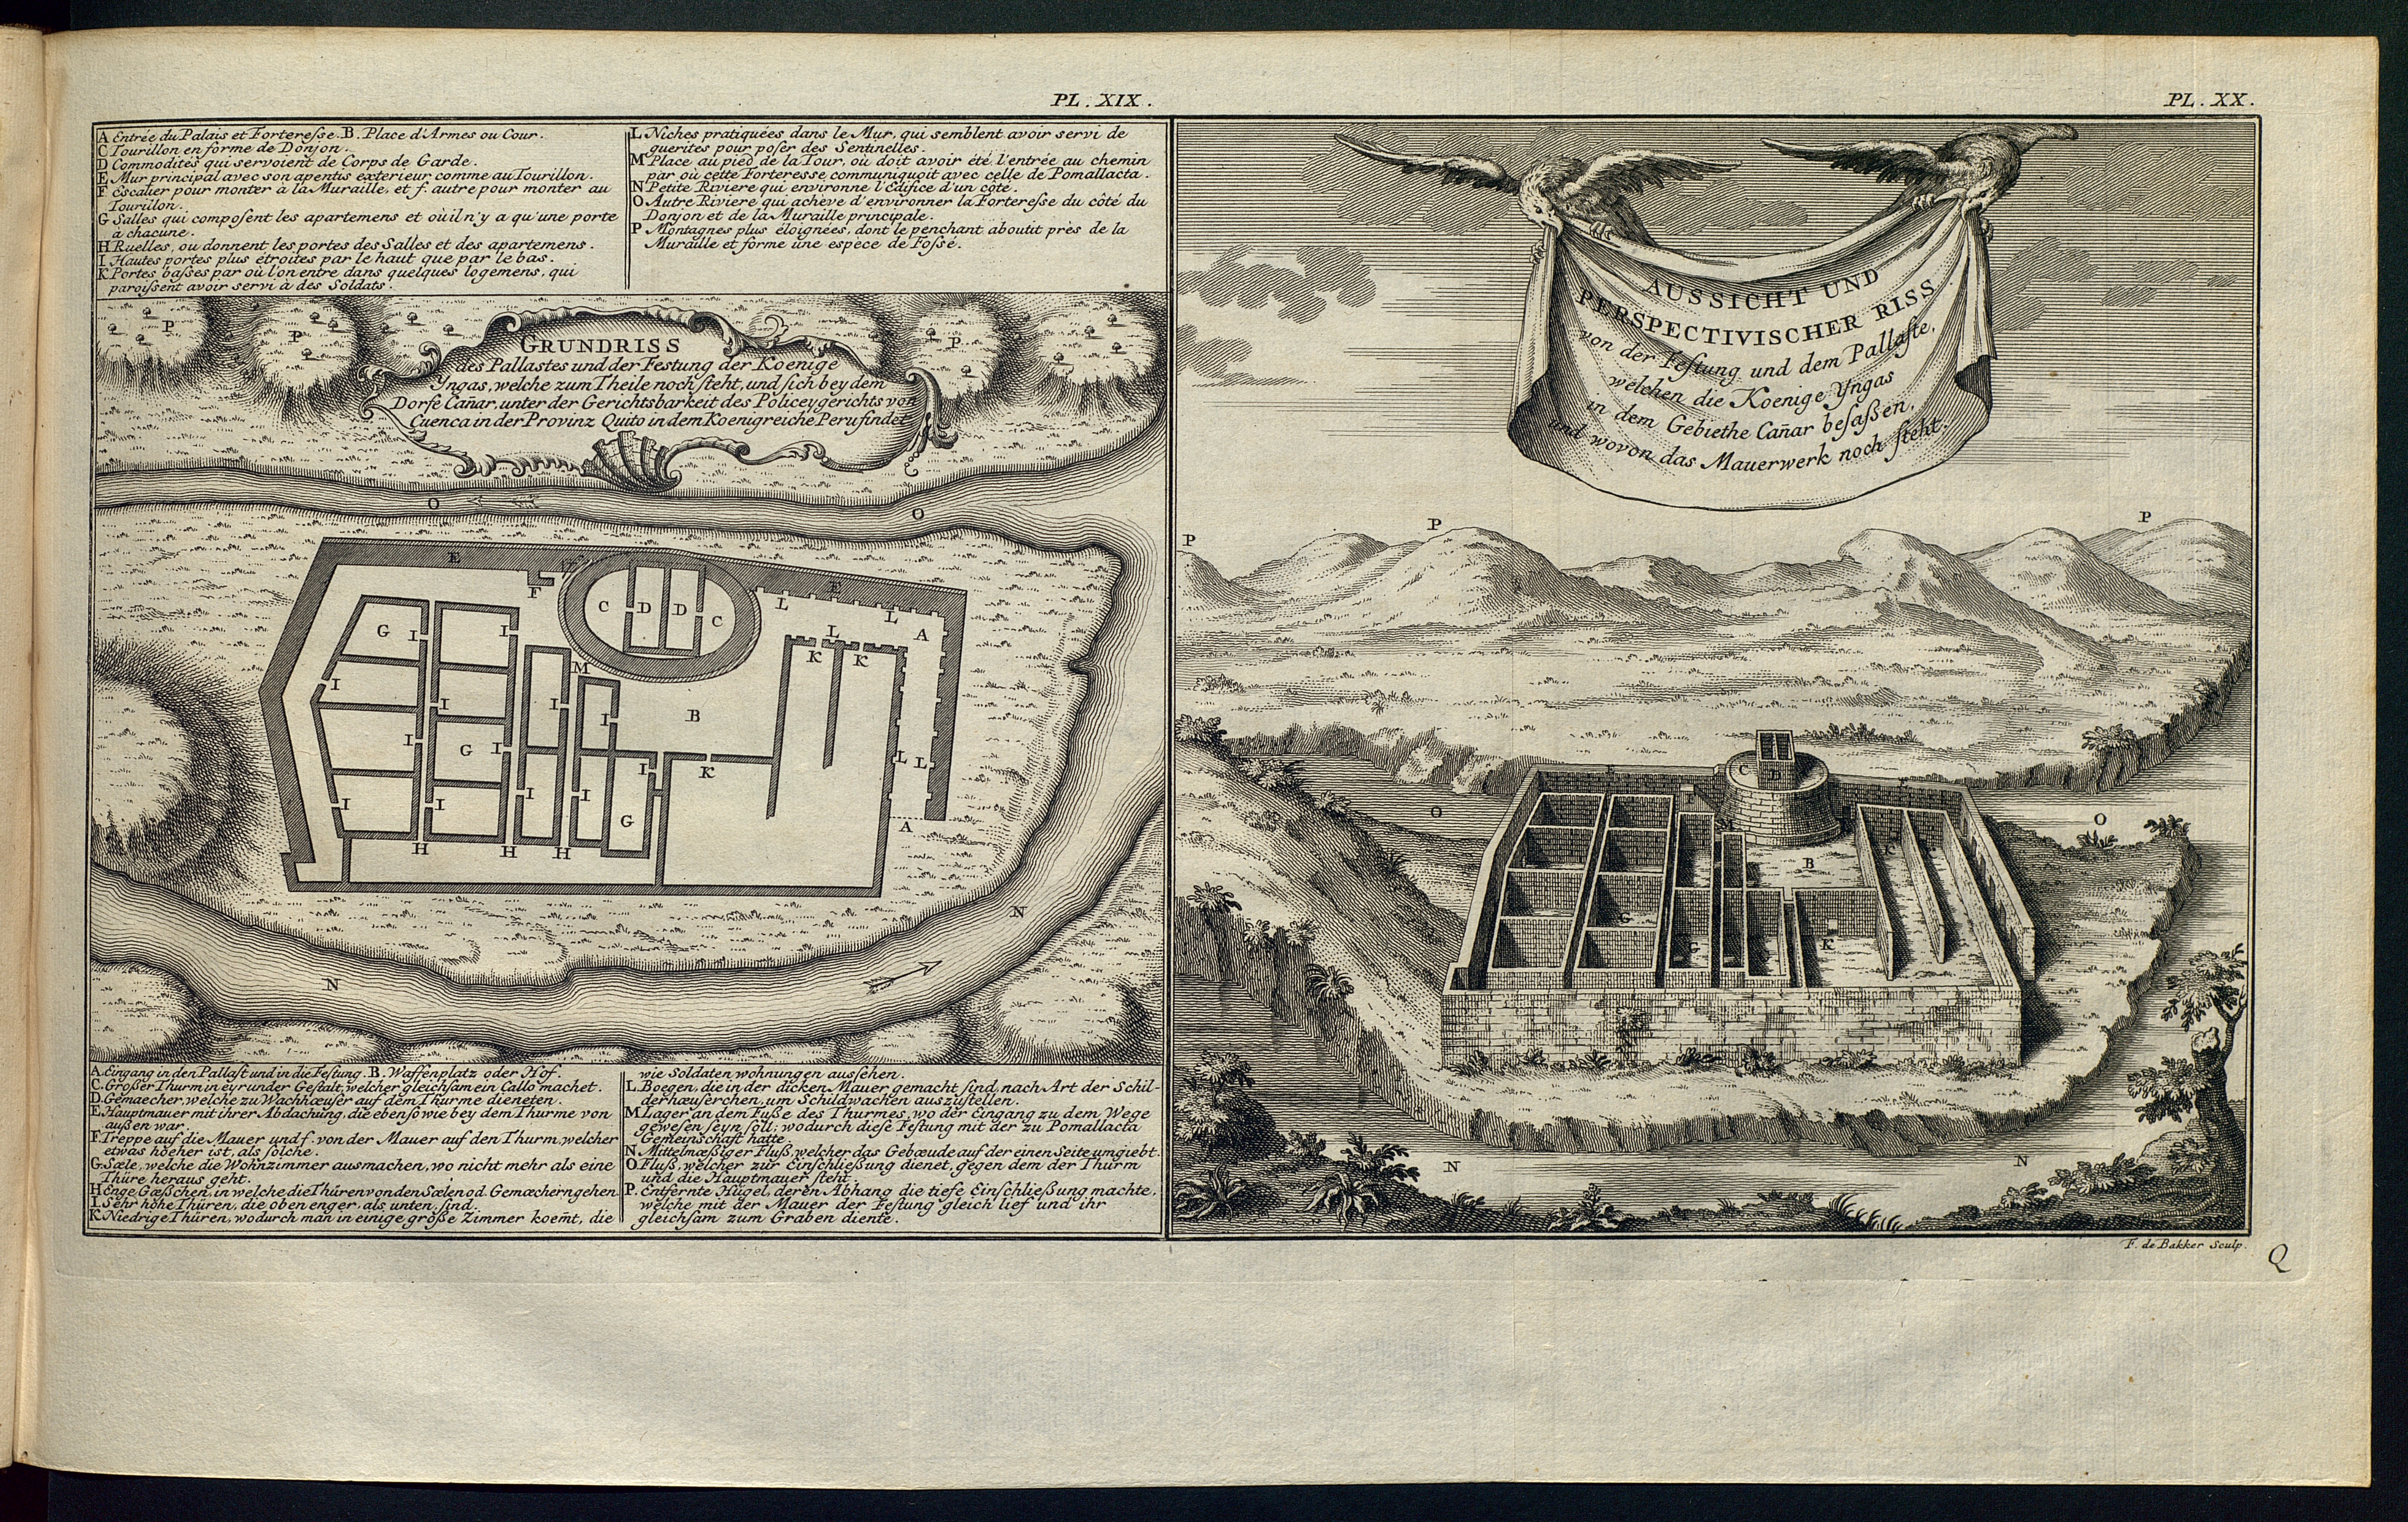 PL. XIX.
PL. XX.
A Entrée du Palais et Forteresse. B. Place d'Armes ou Cour.
C Tourillon en forme de Donjon.
D Commodités qui servoient de Corps de Garde.
E Mur principal avec son apentis exterieur comme au Tourillon.
F Escalier pour monter à la Muraille, et f. autre pour monter au
Tourillon.
G Salles qui composent les apartemens et où il n'y a qu'une porte
à chacune.
H Ruelles, ou donnent les portes des Salles et des apartemens.
I Hautes portes plus étroites par le haut que par le bas.
K Portes basses par où l'on entre dans quelques logemens, qui
paroissent avoir servi à des Soldats.
L Niches pratiquées dans le Mur, qui semblent avoir servi de
guerites pour poser des Sentinelles.
M Place au pied de la Tour, où doit avoir été l'entrée au chemin
par où cette Forteresse communiquoit avec celle de Pomallacta.
N Petite Riviere qui environne l'Edifice d'un côté.
O Autre Riviere qui achève d'environner la Forteresse du côté du
Donjon et de la Muraille principale.
P Montagnes plus éloignées, dont le penchant aboutit près de la
Muraille et forme une espece de Fossé.
GRUNDRISS
des Pallastes und der Festung der Koenige
Yngas, welche zum Theile noch steht, und sich bey dem
Dorfe Cañar, unter der Gerichtsbarkeit des Policeygerichts von
Cuenca in der Provinz Quito in dem Koenigreiche Peru findet
P
P
P
P
O
O
E
F
C
D
D
C
E
L
L
A
G
I
I
L
K
K
M
I
I
I
I
B
I
G
I
I
K
L
L
I
I
I
I
G
A
H
H
H
N
N
A. Eingang in den Pallast und in die Festung. B. Waffenplatz oder Hof.
C. Großer Thurm in eyrunder Gestalt, welcher gleichsam ein Callo machet.
D. Gemaecher, welche zu Wachhæuser auf dem Thurme dieneten.
E. Hauptmauer mit ihrer Abdachung, die eben so wie bey dem Thurme von
außen war.
F. Treppe auf die Mauer und f. von der Mauer auf den Thurm, welcher
etwas hoeher ist, als solche.
G. Sæle, welche die Wohnzimmer ausmachen, wo nicht mehr als eine
Thüre heraus geht.
H Enge Gæßchen, in welche die Thüren von den Sælen od. Gemæchern gehen
I. Sehr hohe Thüren, die oben enger, als unten, sind.
K Niedrige Thüren, wodurch man in einige große Zimmer koem̄t, die
wie Soldaten wohnungen aussehen.
L. Boegen, die in der dicken Mauer gemacht sind, nach Art der Schil-
derhæuserchen, um Schildwachen auszustellen.
M Lager an dem Fuße des Thurmes, wo der Eingang zu dem Wege
gewesen seyn soll; wodurch diese Festung mit der zu Pomallacta
Gemeinschaft hatte.
N Mittelmæßiger Fluß, welcher das Gebæude auf der einen Seite umgiebt.
O. Fluß, welcher zur Einschließung dienet, gegen dem der Thurm
und die Hauptmauer steht.
P. Entfernte Hügel, deren Abhang die tiefe Einschließung machte,
welche mit der Mauer der Festung gleich lief und ihr
gleichsam zum Graben diente.
AUSSICHT UND
PERSPECTIVISCHER RISS
von der Festung und dem Pallaste,
welchen die Koenige Yngas
in dem Gebiethe Cañar besaßen,
und wovon das Mauerwerk noch steht.
P
P
P
E
C
D
E
F
O
M
O
B
K
G
G
K
N
N
F. de Bakker Sculp.
Q